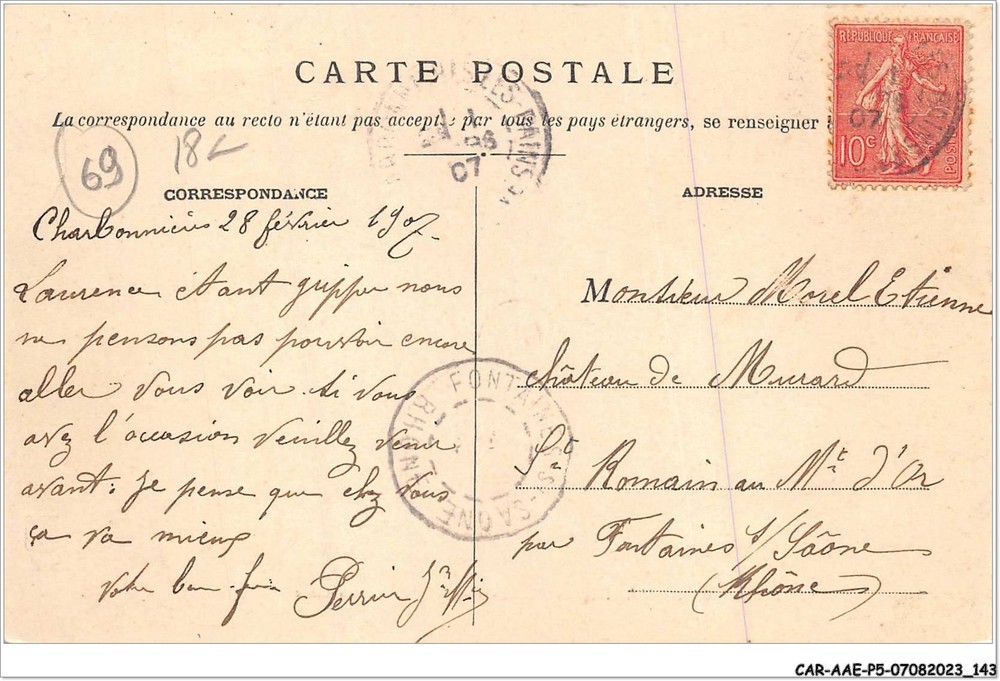 CARTE POSTALE
La correspondance au recto n'étant pas acceptée par tous les pays étrangers, se renseigner
69
18
CORRESPONDANCE
ADRESSE
RÉPUBLIQUE FRANÇAISE
10c
POSTES
LES-BAINS
07
Charbonnières 28 février 1907
Laurence étant grippée nous
ne pensons pas pouvoir encore
aller vous voir si vous
avez l'occasion veuillez venir
avant: je pense que chez vous
ça va mieux
votre
Perrin
Monsieur Morel Etienne
Château de Murard
St Romain au Mt d'Or
par Fontaines s/ Saône
(Rhône)
FONTAINES-S-SAONE
RHONE
CAR-AAE-P5-07082023_143